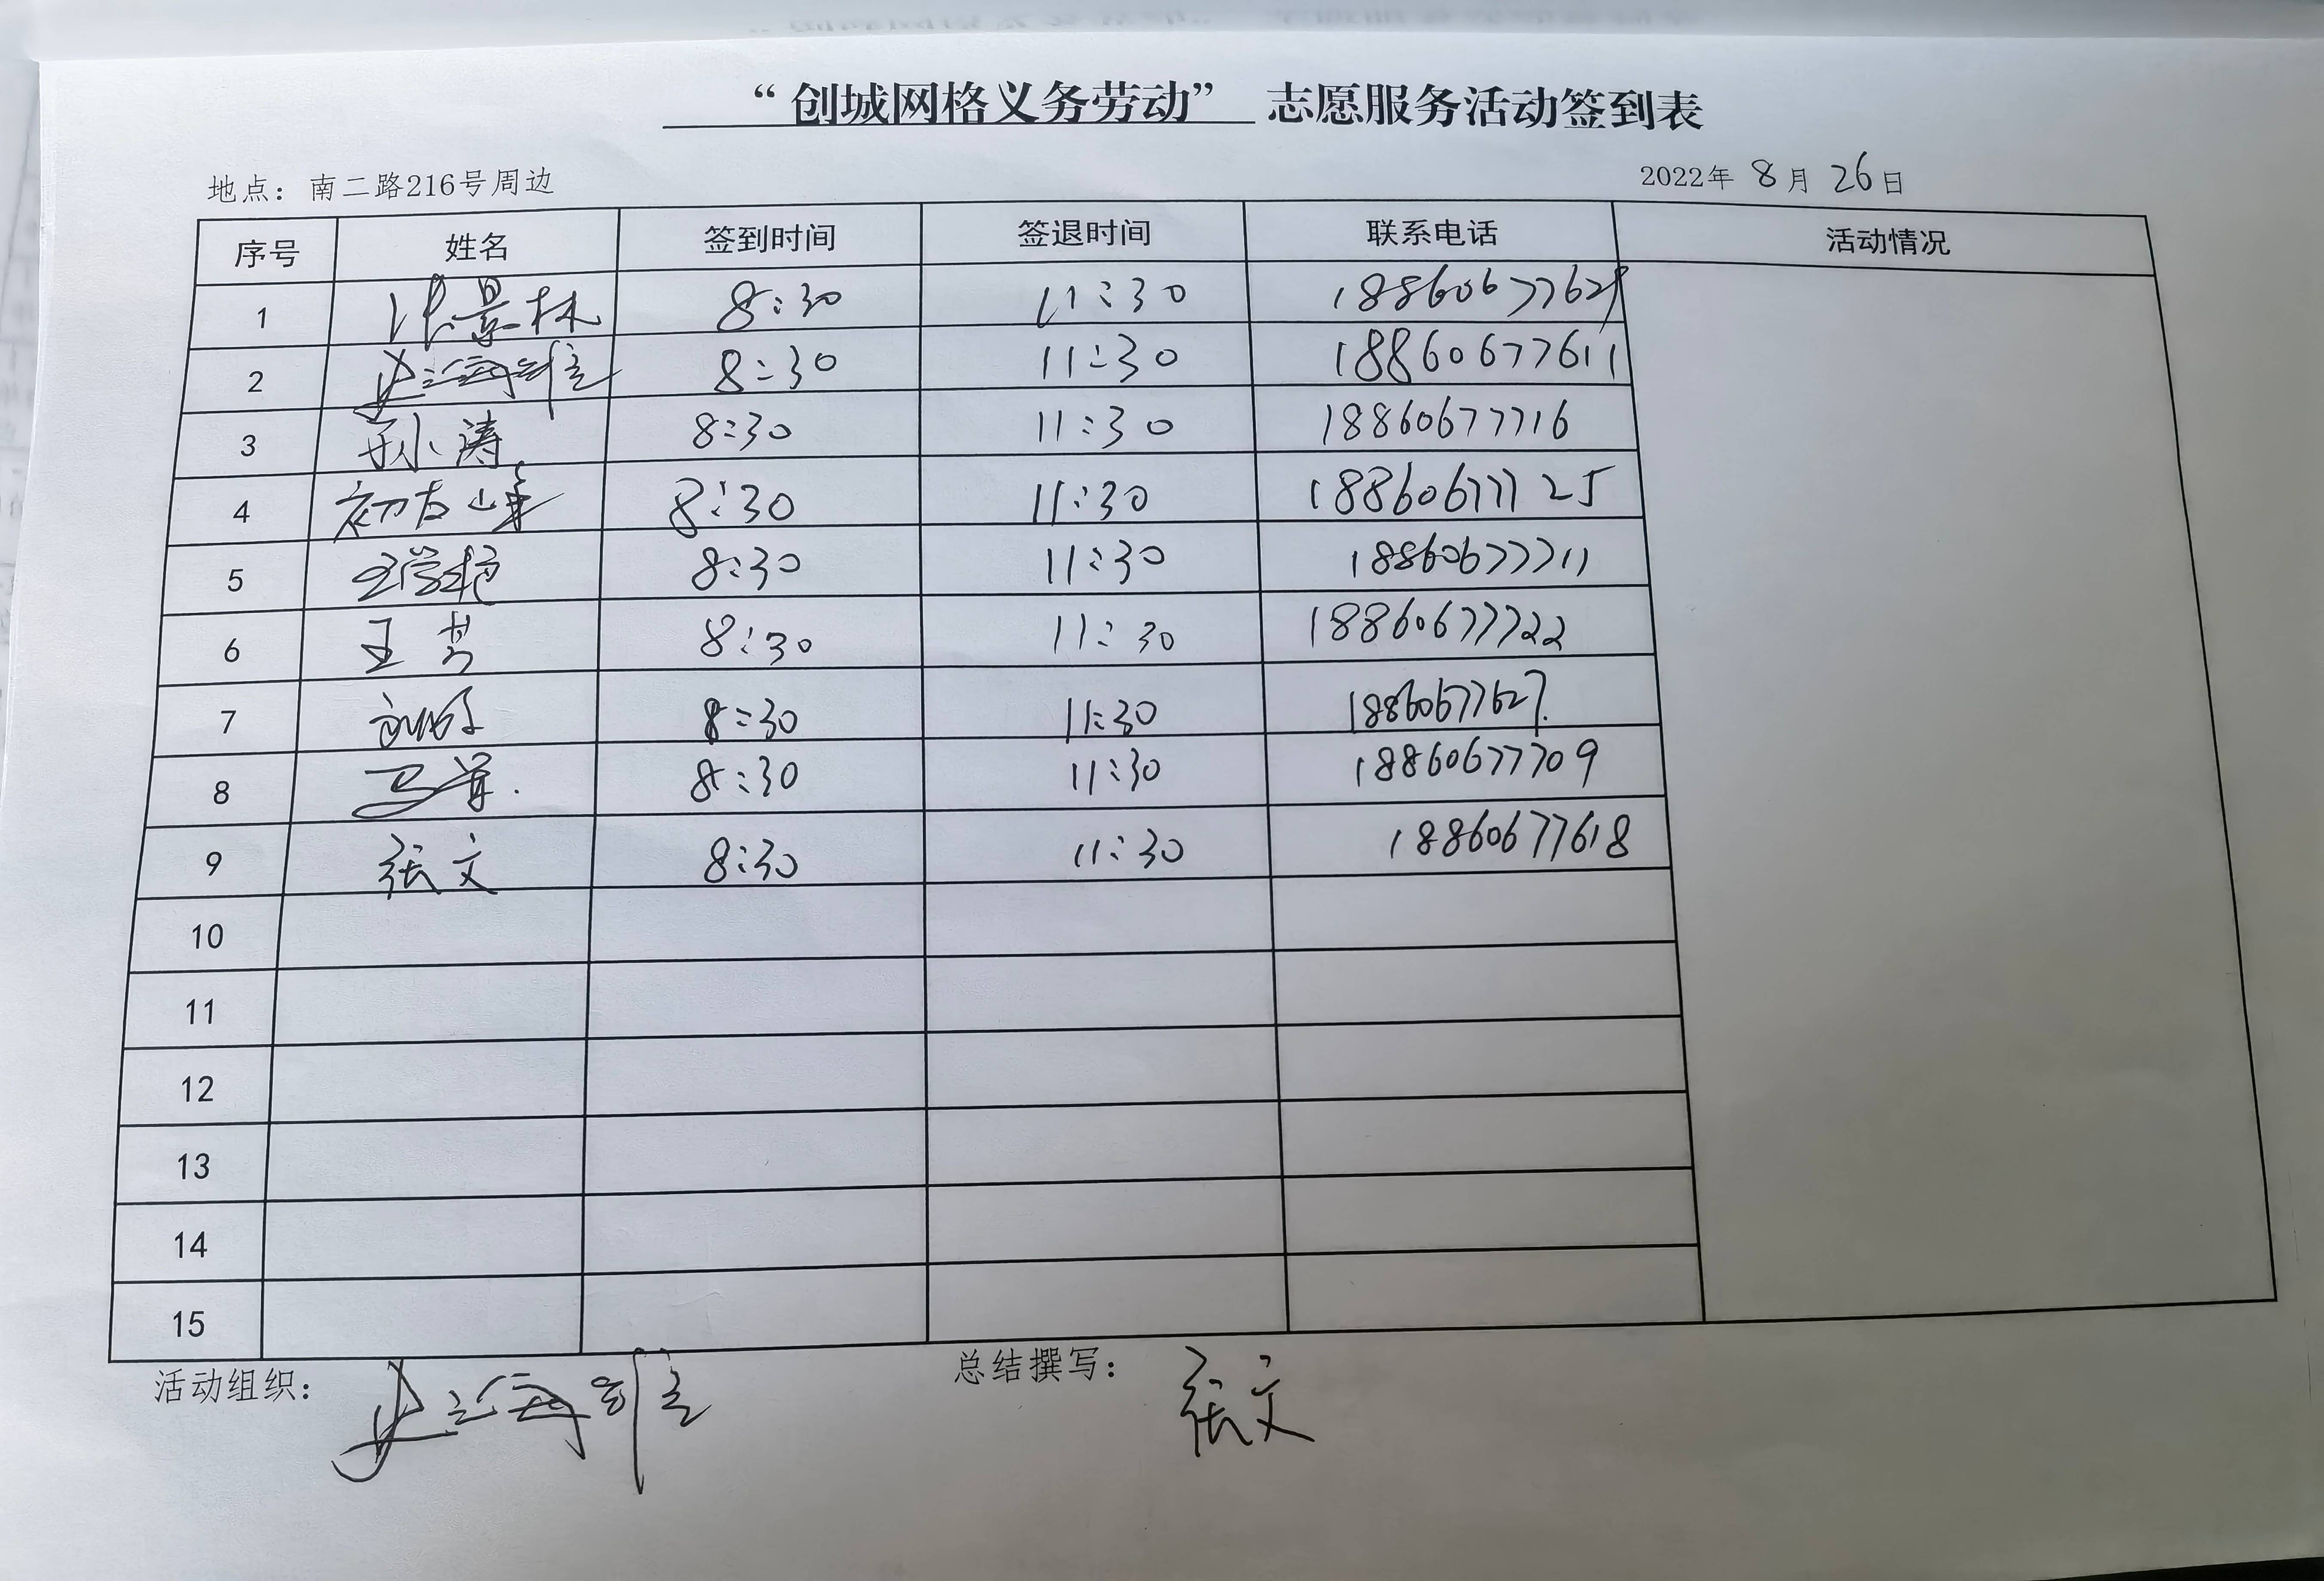 “创城网格义务劳动” 志愿服务活动签到表
地点：南二路216号周边 2022年 8月 26日
序号 姓名 签到时间 签退时间 联系电话 活动情况
1 景林 8:30 11:30
2 8:30 11:30 18860677611
3 孙涛 8:30 11:30 18860677716
4 初友峰 8:30 11:30 18860677725
5 8:30 11:30 18860677711
6 王芳 8:30 11:30 18860677722
7 8:30 11:30 18860677627
8 8:30 11:30 18860677709
9 张文 8:30 11:30 18860677618
10
11
12
13
14
15
活动组织： 总结撰写： 张文